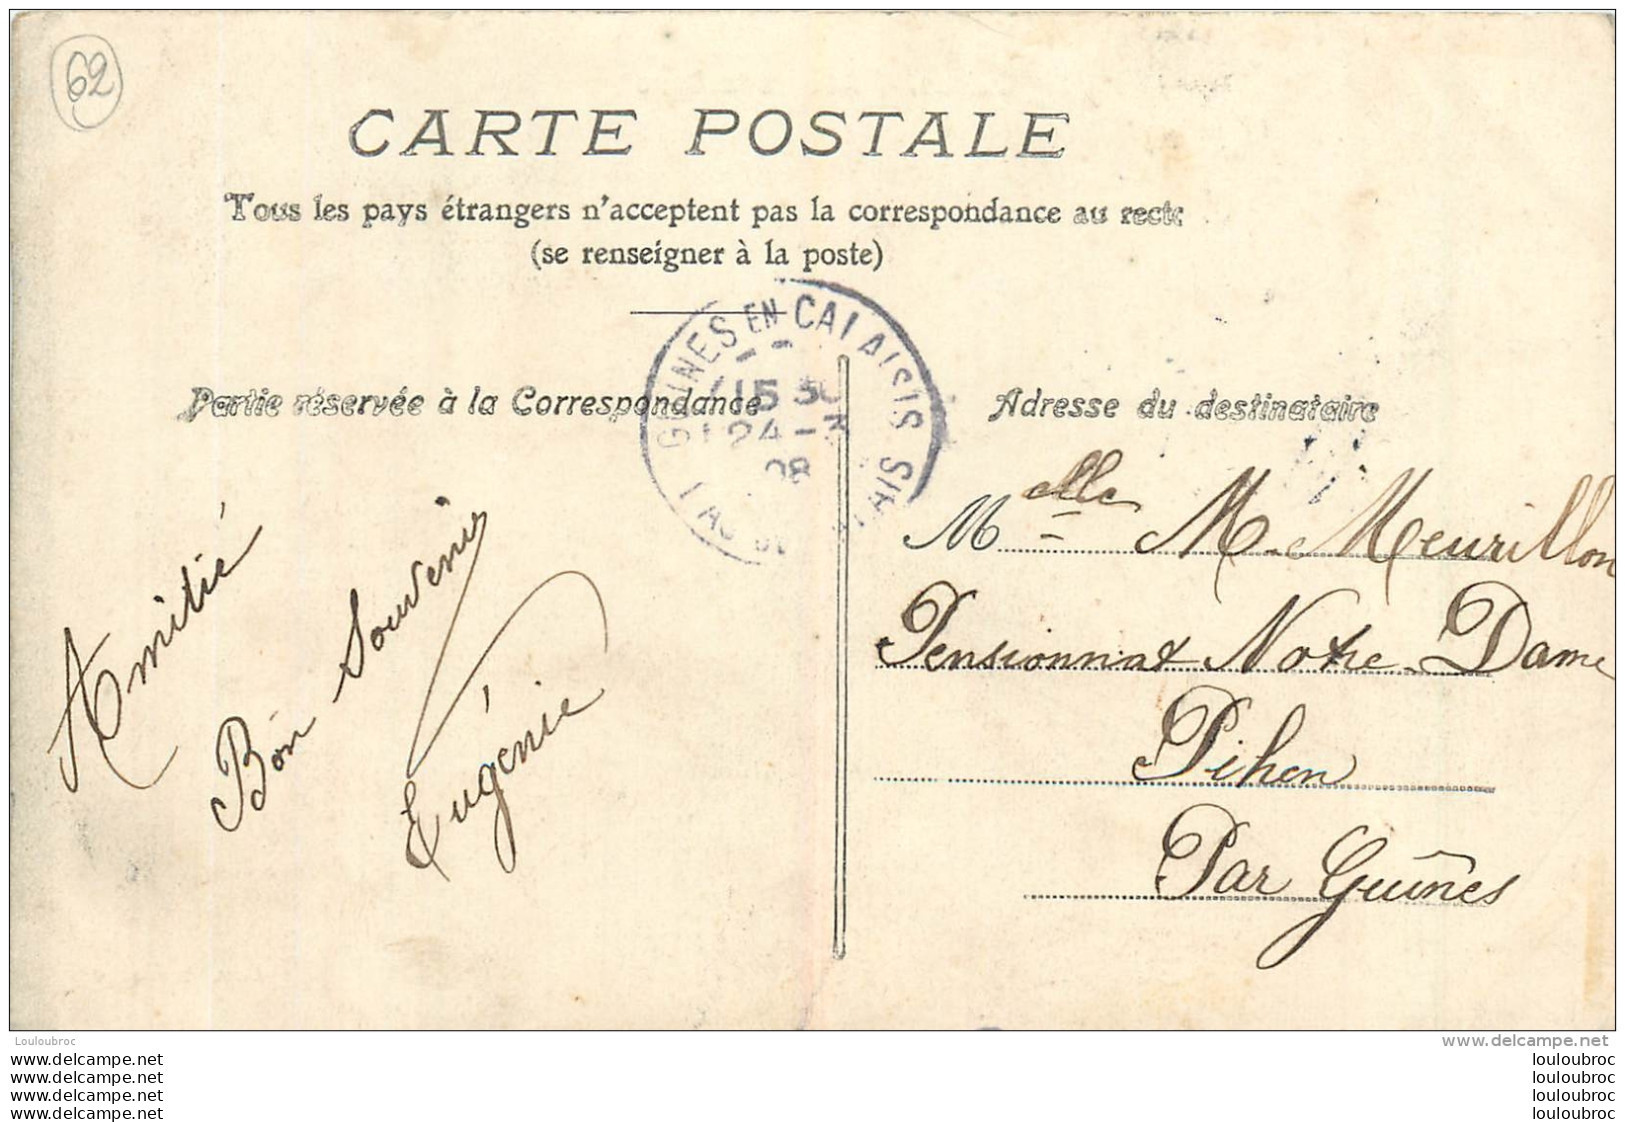 62
CARTE POSTALE
Tous les pays étrangers n'acceptent pas la correspondance au recto
(se renseigner à la poste)
GUINES EN CALAISIS
15 30
24 -
08
Partie réservée à la Correspondance
Adresse du destinataire
Amitié
Bon Souvenir
Eugénie
Melle M. Meurillon
Pensionnat Notre-Dame
Pihen
Par Guînes
Louloubroc
www.delcampe.net
www.delcampe.net
www.delcampe.net
www.delcampe.net
www.delcampe.net
louloubroc
louloubroc
louloubroc
louloubroc